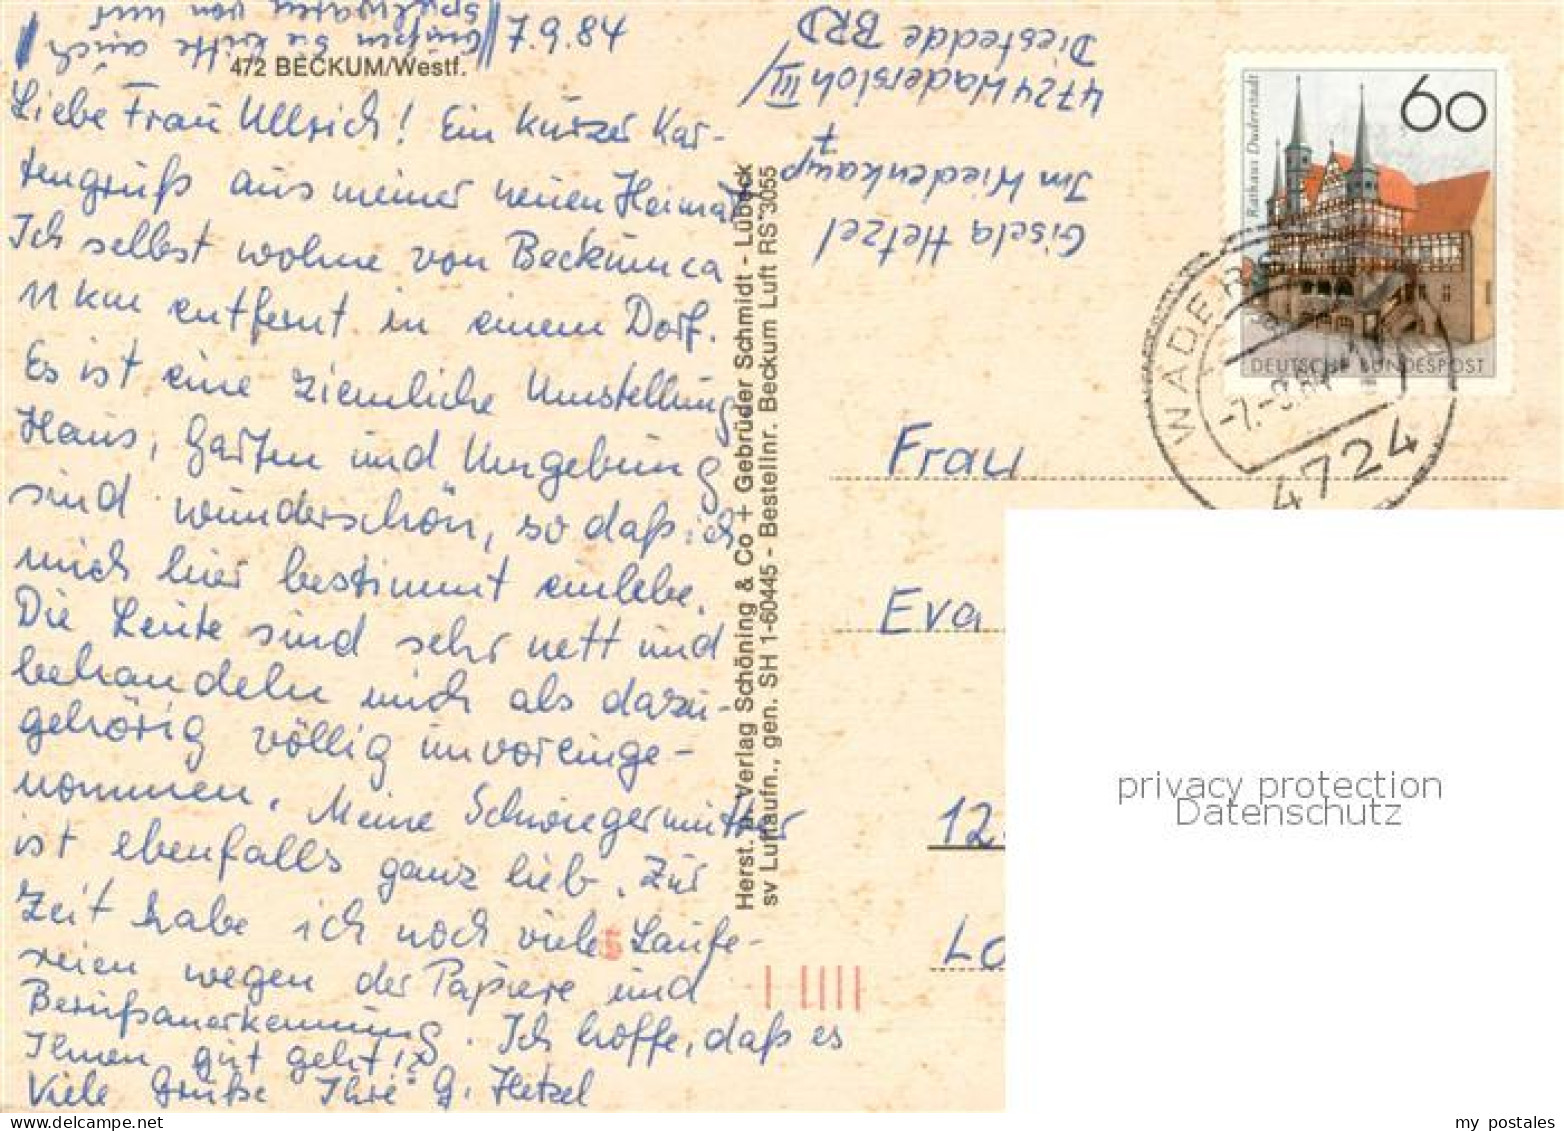 7.9.84
Grüßen Sie bitte auch
von
472 BECKUM/Westf.
Liebe Frau Ullrich! Ein kurzer Kar-
tengruß aus meiner neuen Heimat
Ich selbst wohne von Beckum ca
11 km entfernt in einem Dorf.
Es ist eine ziemliche Umstellung
Haus, Garten und Umgebung
sind wunderschön, so daß ich
mich hier bestimmt einlebe.
Die Leute sind sehr nett und
behandeln mich als dazu-
gehörig völlig unvoreinge-
nommen. Meine Schwiegermutter
ist ebenfalls ganz lieb. Zur
Zeit habe ich noch viele Laufe-
reien wegen der Papiere und
Berufsanerkennung. Ich hoffe, daß es
Ihnen gut geht!
Viele Grüße Ihre G. Hetzel
Herst. u. Verlag Schöning & Co + Gebrüder Schmidt - Lübeck
sv Luftaufn., gen. SH 1-60445 - Bestellnr. Beckum Luft RS 3055
Gisela Hetzel
Im Wiedenkamp
7
4724 Wadersloh III/
Diestedde BRD
60
Rathaus Duderstadt
DEUTSCHE BUNDESPOST
WADERS
-7.-9.84
4724
Frau
Eva
12
Lo
5
privacy protection
Datenschutz
my postales